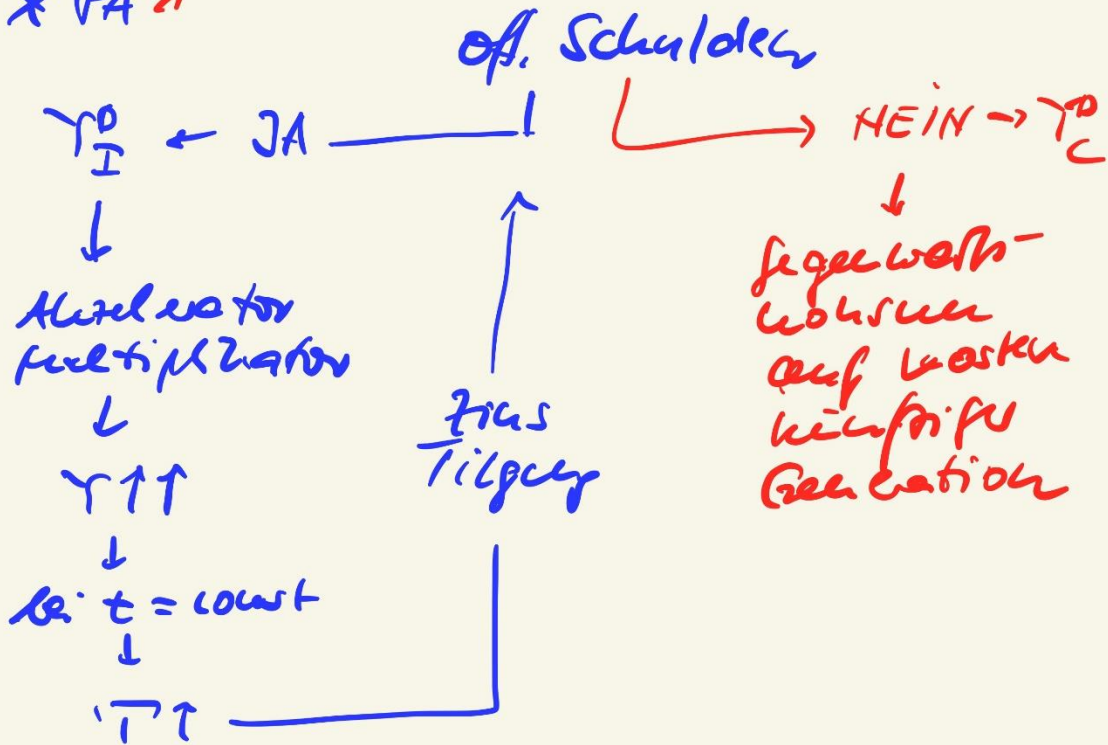 öff. Schulden
Y D I ← JA
NEIN → Y D C
↓
↓
Akzelerator
Multiplikator
↓
Y ↑↑
↓
bei t = const
↓
T ↑
Zins
Tilgung
Gegenwarts-
konsum
auf Kosten
künftiger
Generation